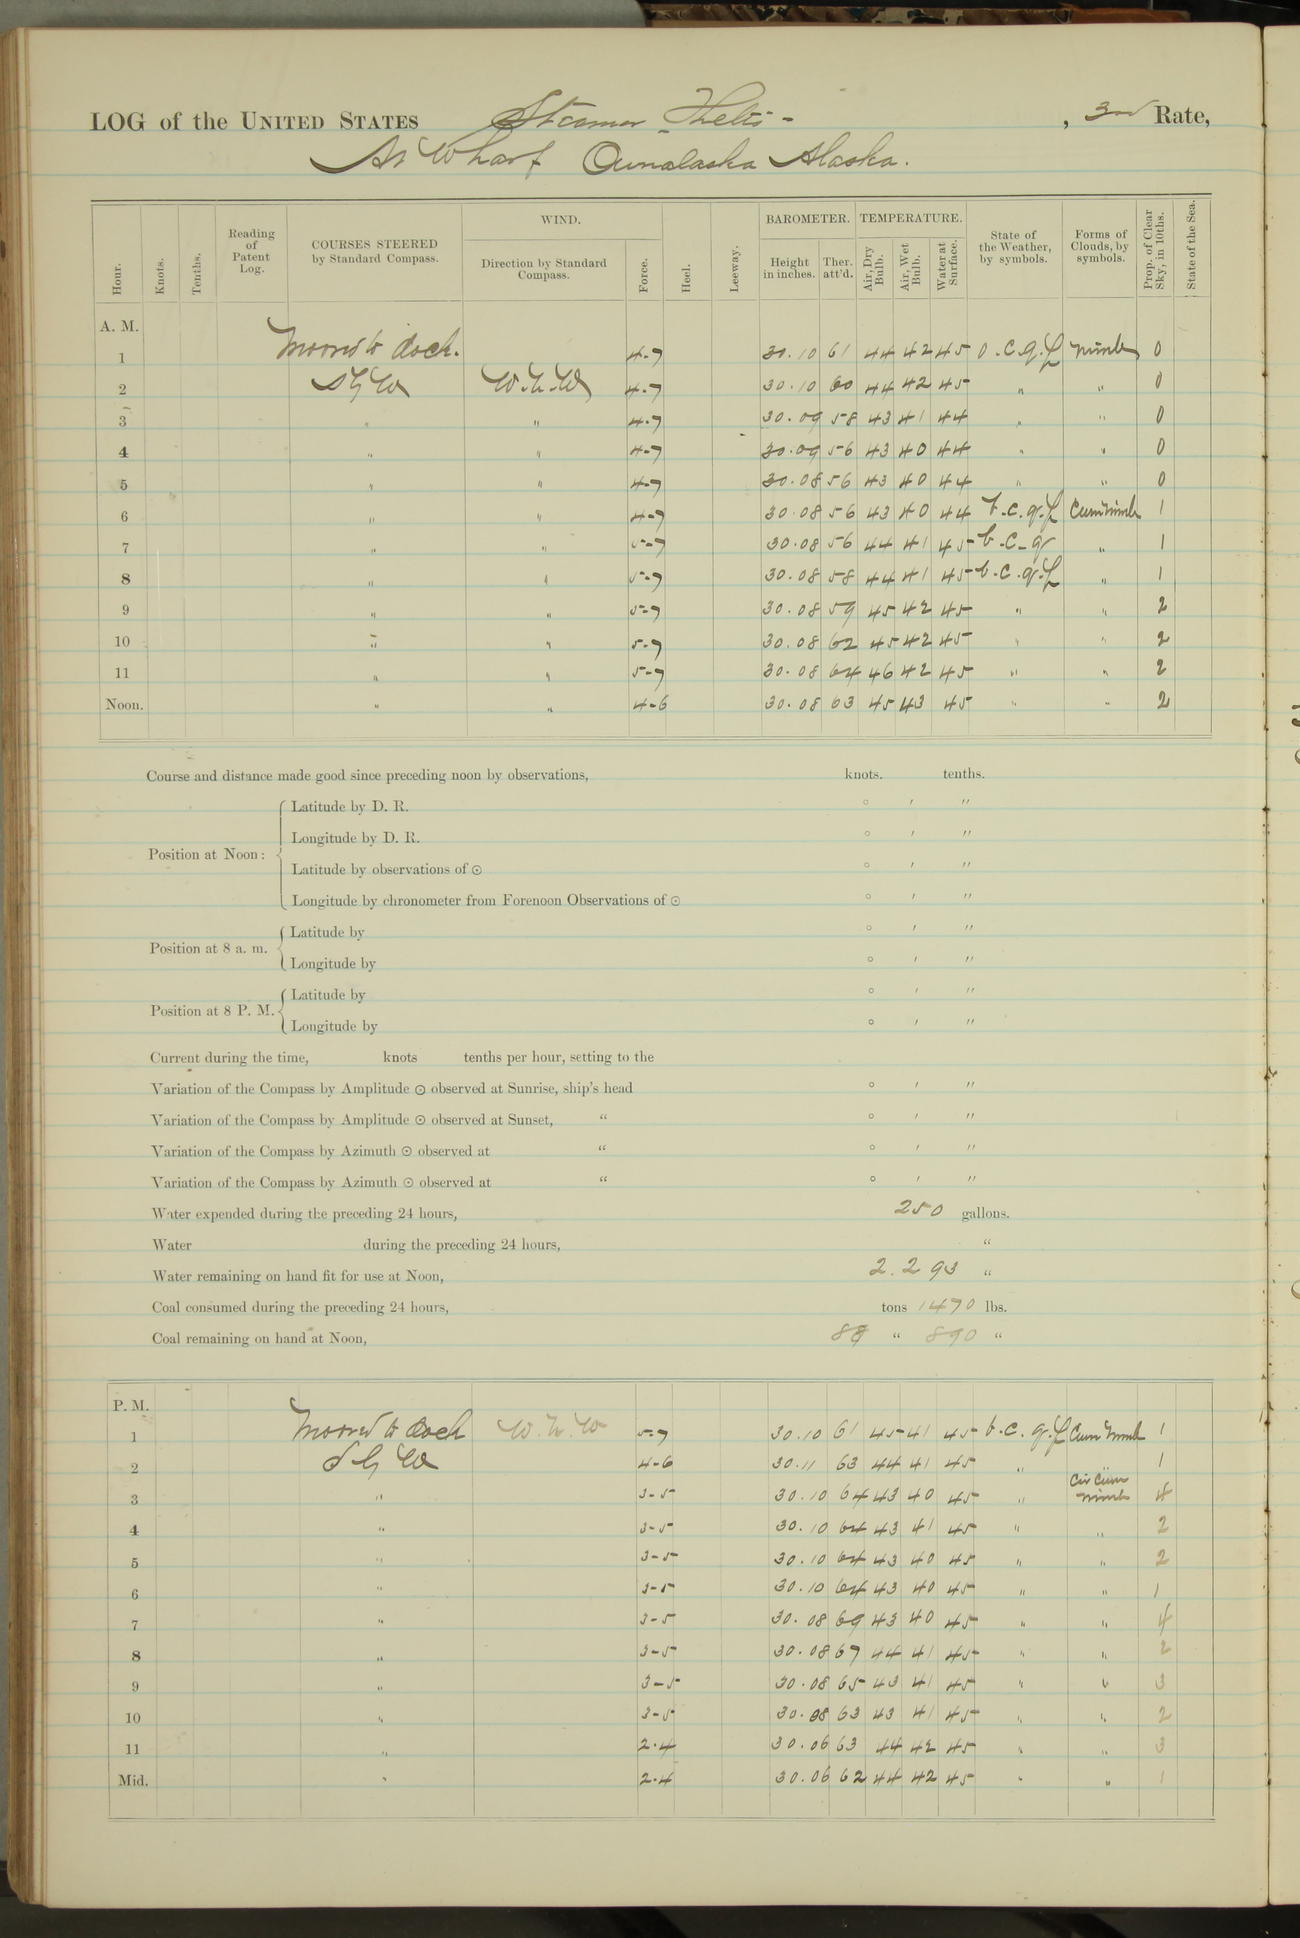 LOG of the UNITED STATES Steamer Thetis - , 3rd Rate,
At Wharf Ounalaska Alaska.
Hour. Knots. Tenths. Reading of Patent Log. COURSES STEERED by Standard Compass. WIND. Direction by Standard Compass. Force. Heel. Leeway. BAROMETER. Height in inches. Ther. att'd. TEMPERATURE. Air, Dry Bulb. Air, Wet Bulb. Water at Surface. State of the Weather, by symbols. Forms of Clouds, by symbols. Prop. of Clear Sky, in 10ths. State of the Sea.
A. M.
1 Moored to dock. 4-7 30.10 61 44 42 45 o.c.q.p nimb 0
2 W.N.W 4-7 30.10 60 44 42 45 " " 0
3 " " 4-7 30.09 58 43 41 44 " " 0
4 " " 4-7 30.09 56 43 40 44 " " 0
5 " " 4-7 30.08 56 43 40 44 " " 0
6 " " 4-7 30.08 56 43 40 44 b.c.q.p Cum nimb 1
7 " " 5-7 30.08 56 44 41 45 b.c-q " 1
8 " " 5-7 30.08 58 44 41 45 b.c.q.p " 1
9 " " 5-7 30.08 59 45 42 45 " " 2
10 " " 5-7 30.08 62 45 42 45 " " 2
11 " " 5-7 30.08 64 46 42 45 " " 2
Noon. " " 4-6 30.08 63 45 43 45 " " 2
Course and distance made good since preceding noon by observations, knots. tenths.
Position at Noon:
Latitude by D. R. ° ′ ″
Longitude by D. R. ° ′ ″
Latitude by observations of ⊙ ° ′ ″
Longitude by chronometer from Forenoon Observations of ⊙ ° ′ ″
Position at 8 a. m.
Latitude by ° ′ ″
Longitude by ° ′ ″
Position at 8 P. M.
Latitude by ° ′ ″
Longitude by ° ′ ″
Current during the time, knots tenths per hour, setting to the
Variation of the Compass by Amplitude ⊙ observed at Sunrise, ship's head ° ′ ″
Variation of the Compass by Amplitude ⊙ observed at Sunset, “ ° ′ ″
Variation of the Compass by Azimuth ⊙ observed at “ ° ′ ″
Variation of the Compass by Azimuth ⊙ observed at “ ° ′ ″
Water expended during the preceding 24 hours, 250 gallons.
Water during the preceding 24 hours, “
Water remaining on hand fit for use at Noon, 2.293 “
Coal consumed during the preceding 24 hours, tons 1470 lbs.
Coal remaining on hand at Noon, 88 “ 890 “
P. M.
1 Moored to dock W.N.W 5-7 30.10 61 45 41 45 b.c.q.p Cum Nimb 1
2 4-6 30.11 63 44 41 45 " " 1
3 " 3-5 30.10 64 43 40 45 " Cir Cum nimb 4
4 " 3-5 30.10 64 43 41 45 " " 2
5 " 3-5 30.10 64 43 40 45 " " 2
6 " 3-5 30.10 64 43 40 45 " " 1
7 " 3-5 30.08 69 43 40 45 " " 4
8 " 3-5 30.08 67 44 41 45 " " 2
9 " 3-5 30.08 65 43 41 45 " " 3
10 " 3-5 30.08 63 43 41 45 " " 2
11 " 2.4 30.06 63 44 42 45 " " 3
Mid. " 2.4 30.06 62 44 42 45 " " 1